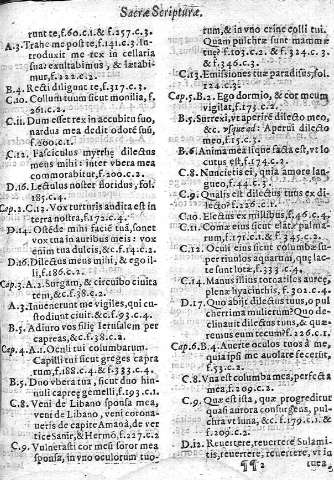 Sacræ Scripturæ.
runt te, f.60.c.1. & f.257.c.3.
A.3. Trahe me post te, f.141.c.3. In-
troduxit me rex in cellaria
sua: exultabimus, & lætabi-
mur, f.222.c.2.
B.4. Recti diligunt te, f.317.c.3.
C.10. Collum tuum sicut monilia, f.
261.c.2.
C.11. Dum esset rex in accubitu suo,
nardus mea dedit odorē suū,
f.200.c.1.
C.12. Fasciculus myrrhę dilectus
meus mihi: inter vbera mea
commorabitur, f.200.c.2.
D.16. Lectulus noster floridus, fol.
185.c.4.
Cap.2. C.12. Vox turturis audita est in
terra nostra, f.172.c.4.
D.14. Ostēde mihi faciē tuā, sonet
vox tua in auribus meis: vox
enim tua dulcis, &c. f.14.c.2.
D.16. Dilectus meus mihi, & ego il-
li, f.186.c.2.
Cap.3. A.2. Surgam, & circuibo ciuita
tem, &c. f.38.c.2.
A.3. Inuenerunt me vigiles, qui cu-
stodiunt ciuit. &c. f.93.c.4.
B.5. Adiuro vos filię Ierusalem per
capreas, &c. f.38.c.2.
Cap.4. A.1. Oculi tui columbarum.
Capilli tui sicut greges capra
rum, f.188.c.4. & f.333.c.4.
B.5. Duo vbera tua, sicut duo hin-
nuli capreę gemelli, f.193.c.1.
C.8. Veni de Libano sponsa mea,
veni de Libano, veni corona-
ueris de capite Amanà, de ver
tice Sanir, & Hermō, f.227.c.2
C.9. Vulnerasti cor meū soror mea
sponsa, in vno oculorum tuo-
rum, & in vno crine colli tui.
Quam pulchræ sunt mammæ
tuæ? f.103.c.2. & f.324.c.3.
& f.346.c.3.
C.13. Emissiones tuæ paradisus, fol.
224.c.3.
Cap.5. B.2. Ego dormio, & cor meum
vigilat, f.173.c.2.
B.5. Surrexi, vt aperirē dilecto meo,
&c. vsquead: Aperui dilecto
meo, f.15.c.3.
B.6. Anima mea liquefacta est, vt lo
cutus est, f.174.c.2.
C.8. Nuncietis ei, quia amore lan-
gueo, f.44.c.3.
C.9. Qualis est dilectus tuus ex di-
lecto? f.226.c.1.
C.10. Electus ex millibus, f.46.c.4.
C.11. Comæ eius sicut elatæ palma-
rum, f.171.c.1. & f.345.c.2.
C.12. Oculi eius sicut columbæ su-
per riuulos aquarum, quę lac-
te sunt lotæ, f.333.c.4.
C.14. Manus illius tornatiles aureę,
plenæ hyacinthis, f.204.c.4.
D.17. Quo abijt dilectus tuus, o pul
cherrima mulierum? Quo de-
clinauit dilectus tuus, & quæ-
remus eum tecum? f.226.c.1.
Cap.6. B.4. Auerte oculos tuos à me,
quia ipsi me auolare fecerūt,
f.53.c.2.
C.8. Vna est columba mea, perfecta
mea, f.209.c.2.
C.9. Quæ est ista, quæ progreditur
quasi aurora consurgens, pul-
chra vt luna, &c. f.179.c.1. &
f.209.c.2.
D.12. Reuertere, reuertere Sulami-
tis, reuertere, reuertere, vt in-
¶¶ 2